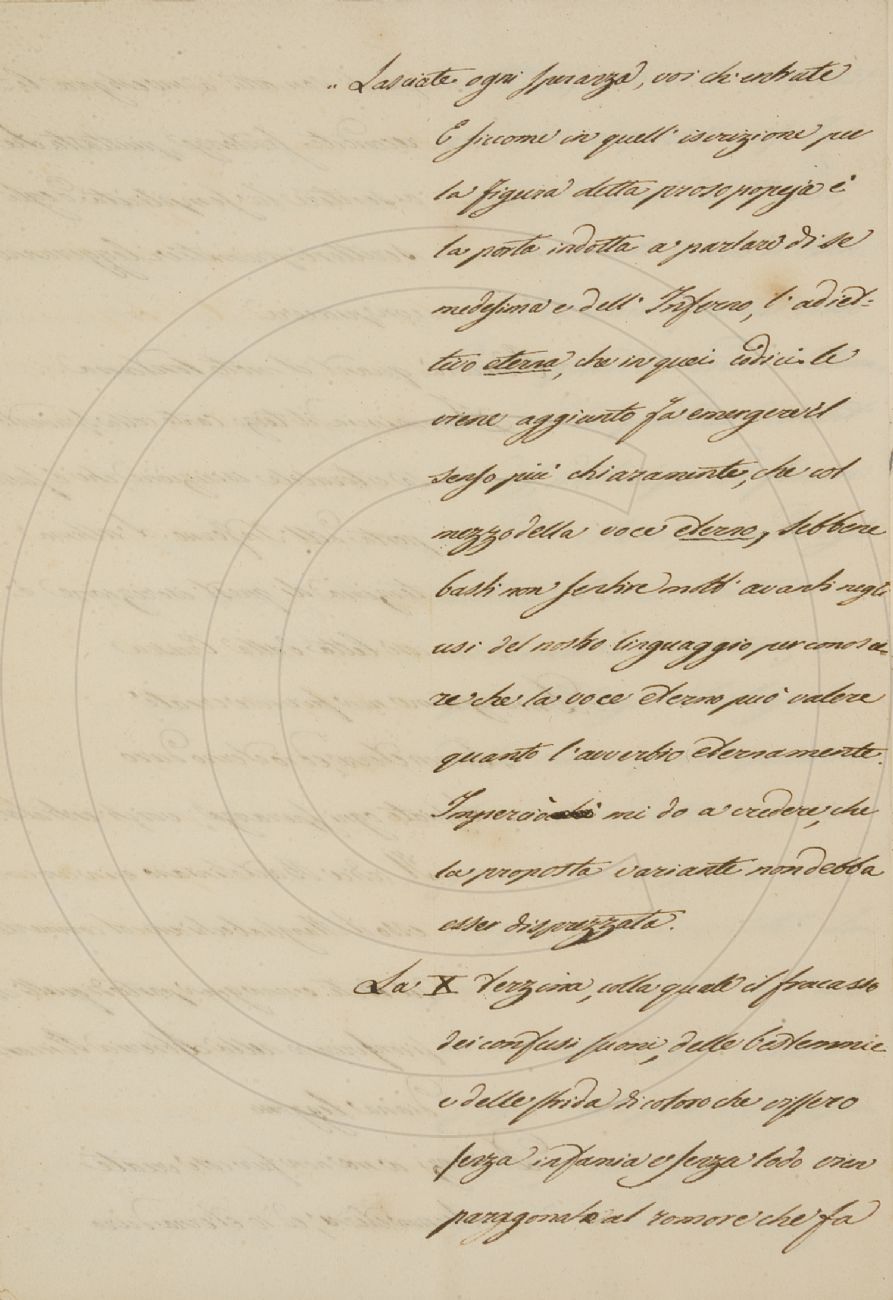 " Lasciate ogni speranza, voi ch' entrate
E siccome in quell' iscrizione per
la figura detta prosopopeja è
la porta indotta a parlare di se
medesima e dell' Inferno, l' adiet-
tivo eterna, che in quei codici le
viene aggiunto fa emergere il
senso più chiaramente, che col
mezzo della voce eterno, sebbene
basti non sentire molt' avanti negli
usi del nostro linguaggio per conosce-
re che la voce eterno può valere
quanto l' avverbio eternamente.
Imperciò mi do a credere, che
la proposta variante non debba
esser disprezzata.
La X Terzina, colla quale il fracasso
dei confusi suoni, delle bestemmie
e delle strida di coloro che vissero
senza infamia e senza lodo vien
paragonata al romore che fa